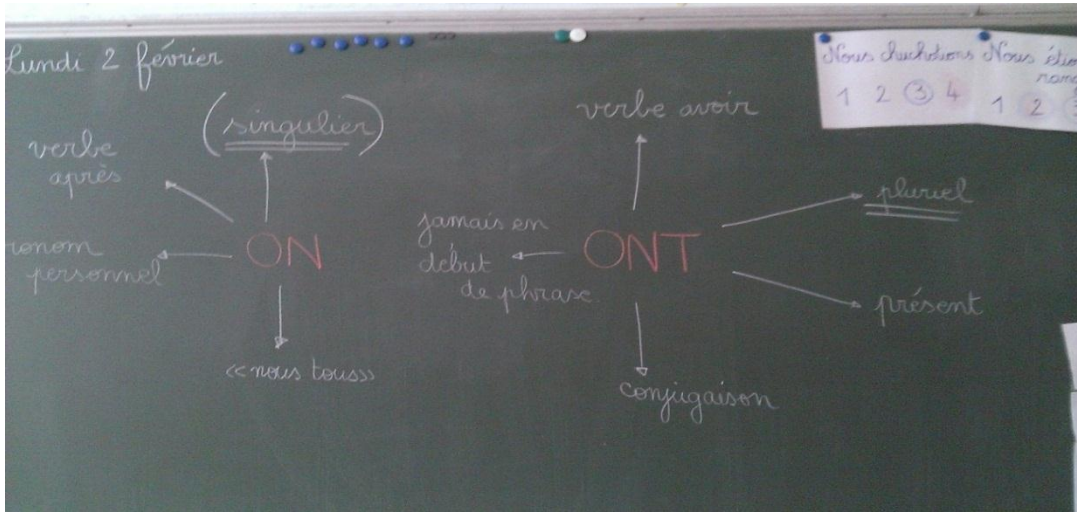 Lundi 2 février
Nous chuchotions
1 2 3 4
Nous
1 2
(singulier)
verbe
après
personnel
ON
«nous tous»
verbe avoir
jamais en
début
de phrase.
ONT
pluriel
présent
conjugaison